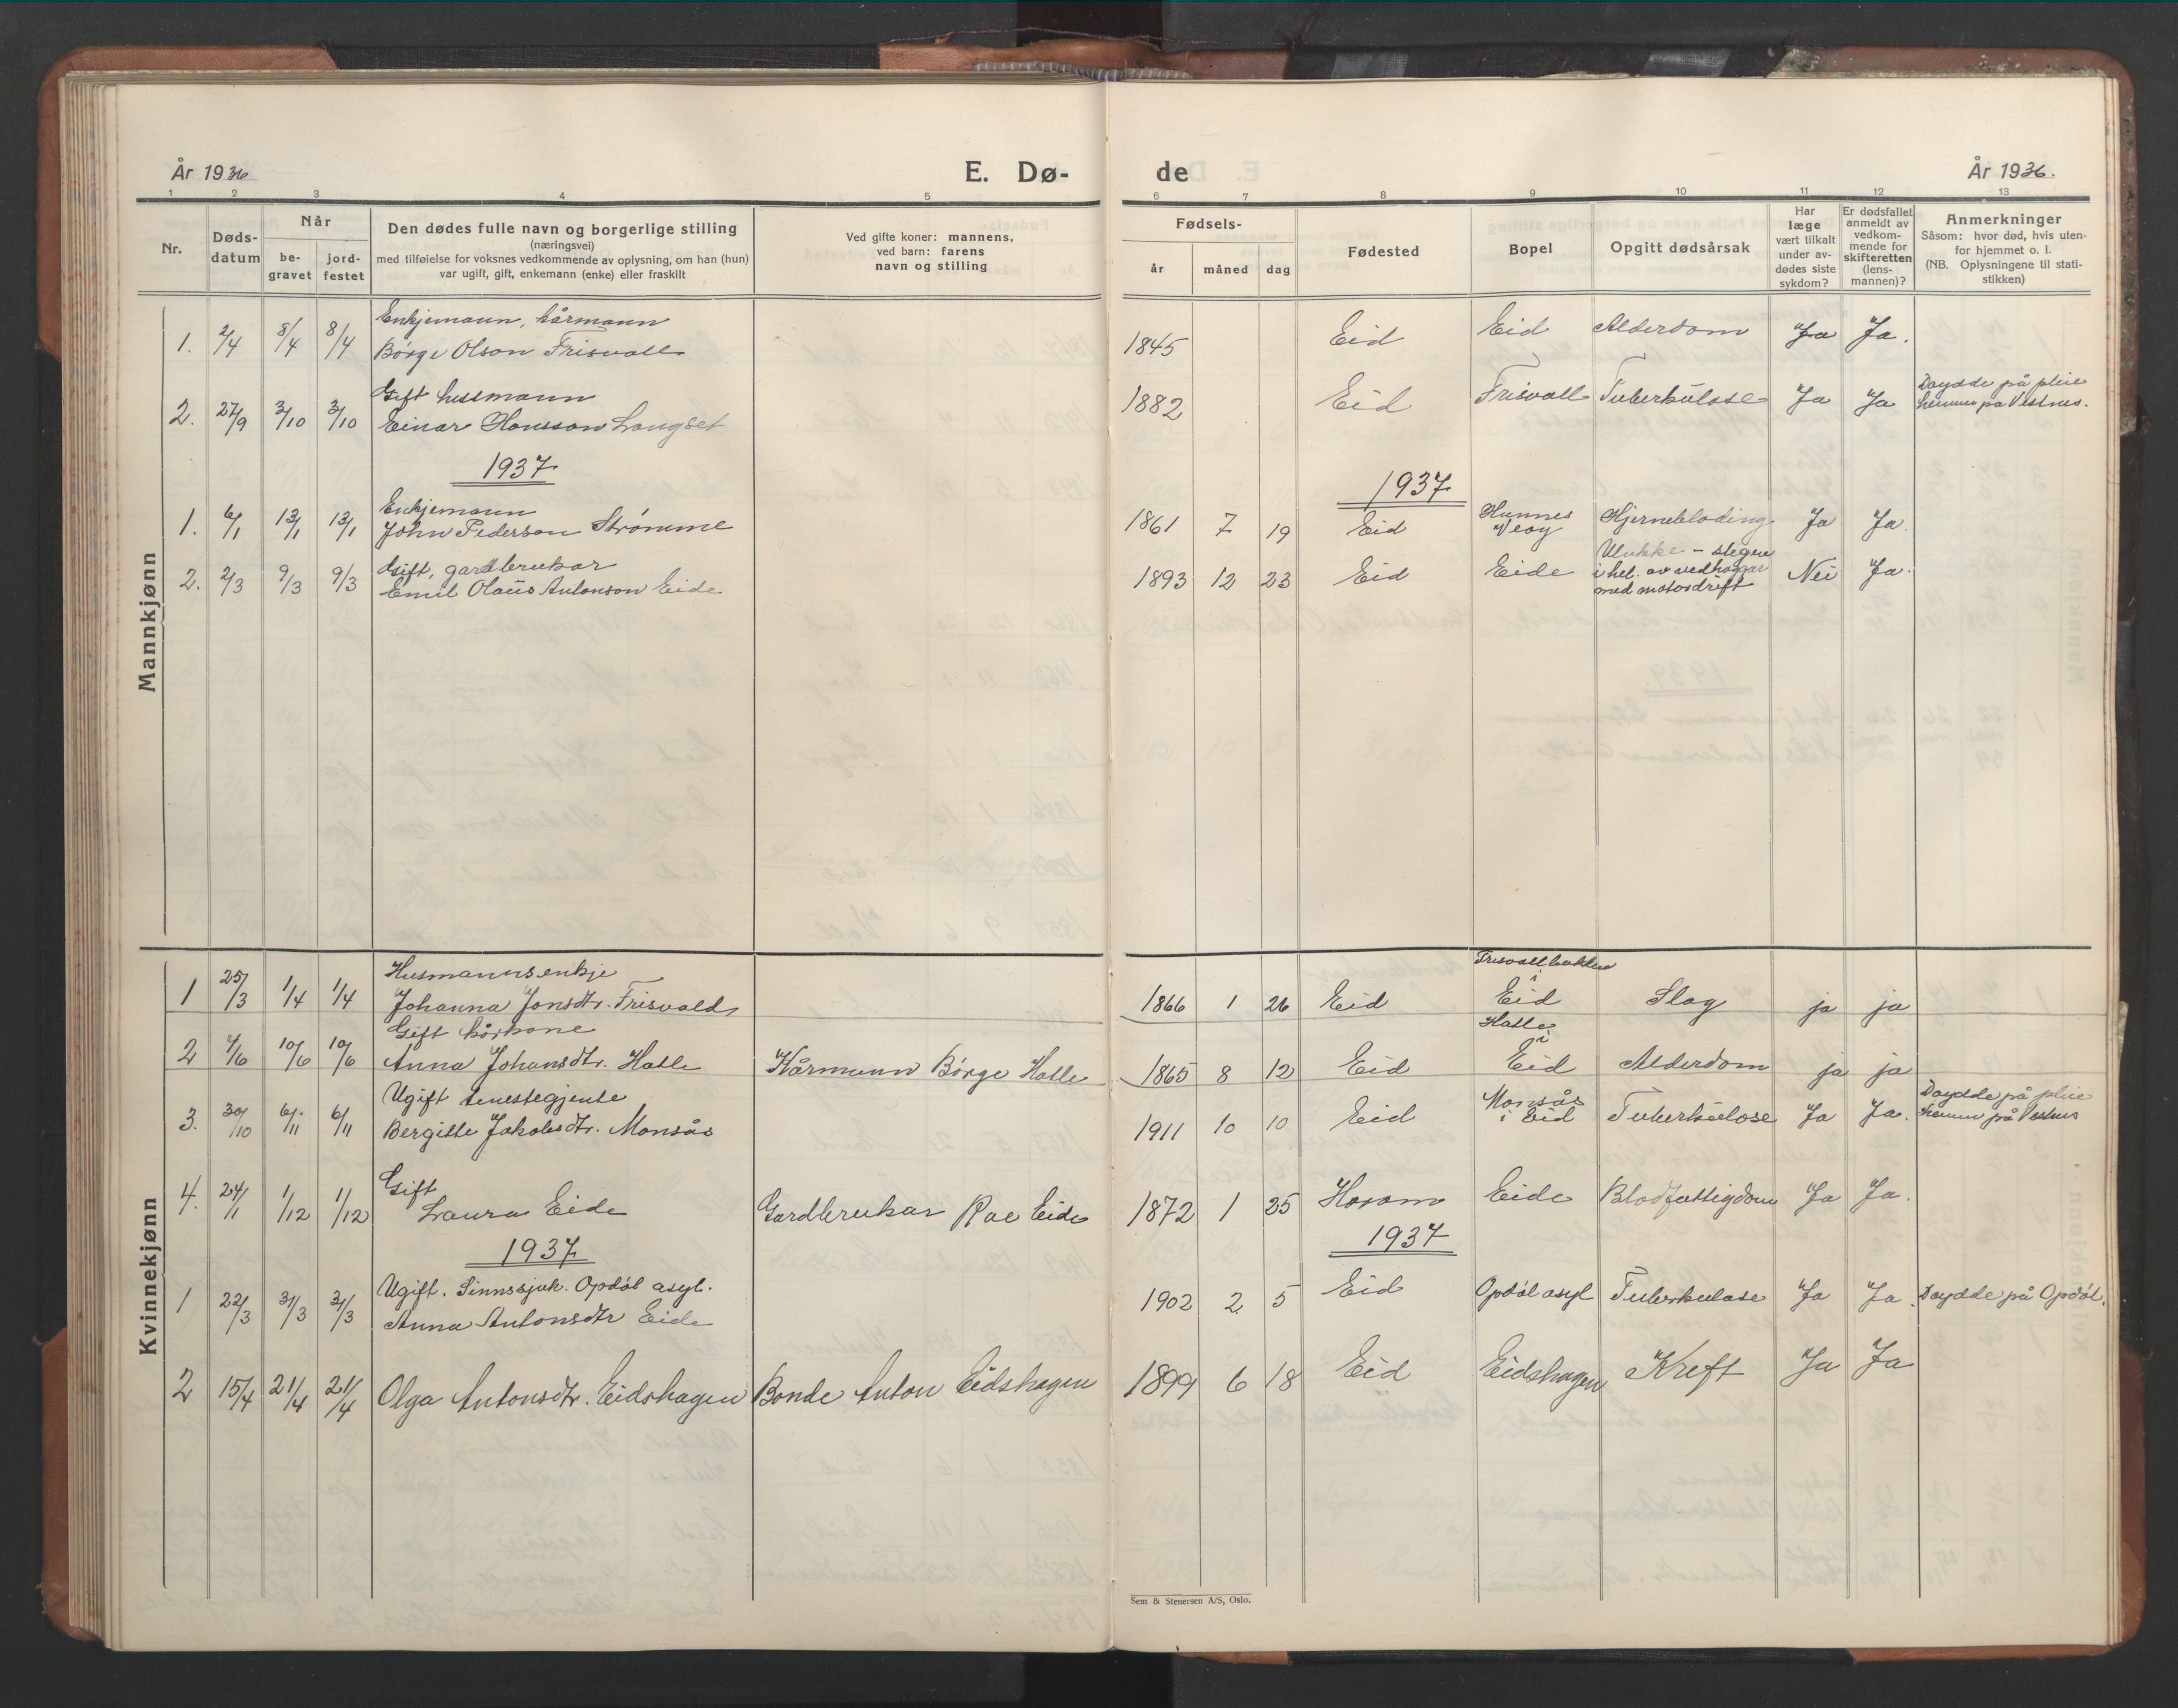 År 1936
E. Dø-
de
År 1936.
1 2 3 4 5 6 7 8 9 10 11 12 13
Nr.
Døds-
datum
Når
be-
gravet
jord-
festet
Den dødes fulle navn og borgerlige stilling
(næringsvei)
med tilføielse for voksnes vedkommende av oplysning, om han (hun)
var ugift, gift, enkemann (enke) eller fraskilt
Ved gifte koner: mannens,
ved barn: farens
navn og stilling
Fødsels-
år måned dag
Fødested
Bopel
Opgitt dødsårsak
Har
læge
vært tilkalt
under av-
dødes siste
sykdom?
Er dødsfallet
anmeldt av
vedkom-
mende for
skifteretten
(lens-
mannen)?
Anmerkninger
Såsom: hvor død, hvis uten-
for hjemmet o. l.
(NB. Oplysningene til stati-
stikken)
Mannkjønn
Enkjemann, kårmann
1. 2/4 8/4 8/4 Börge Olson Frisvoll 1845 Eid Eid Alderdom Ja Ja.
Gift husmann
2. 27/9 3/10 3/10 Einar Hansson Langset 1882 Eid Frisvoll Tuberkulose Ja Ja Döydde på pleie
heimen på Vestnes.
1937
1937
Enkjemann
1. 6/1 13/1 13/1 John Pederson Strømme 1861 7 19 Eid Hunnes
Veøy Hjernebløding Ja Ja.
Gift, gardbrukar
2. 2/3 9/3 9/3 Emil Olaüs Antonson Eide 1893 12 23 Eid Eide Ulukke - slegen
i hel. av vedhoggar
med motordrift Nei Ja.
Kvinnekjønn
Husmannsenkje
1 25/3 1/4 1/4 Johanna Jonsdtr. Frisvold 1866 1 26 Eid Frisvollbakken
i
Eid Slag ja ja
Gift kårkone
2 4/6 10/6 10/6 Anna Johansdtr. Halle Kårmann Börge Halle 1865 8 12 Eid Halle
i
Eid Alderdom ja ja
Ugift tenestegjente
3. 30/10 6/11 6/11 Bergitte Jakobsdtr. Monsås 1911 10 10 Eid Monsås
i Eid Tuberkulose Ja Ja. Döydde på pleie
heimen på Vestnes
Gift
4. 24/11 1/12 1/12 Laura Eide Gardbrukar Eide 1872 1 25 Haram Eide Blodfattigdom Ja Ja.
1937
1937
Ugift. Sinnssjuk. Opdöl asyl.
1 22/3 31/3 31/3 Anna Antonsdtr Eide 1902 2 5 Eid Opdöl asyl Tuberkulose Ja Ja. Döydde på Opdöl.
2 15/4 21/4 21/4 Olga Antonsdtr. Eidshagen Bonde Anton Eidshagen 1899 6 18 Eid Eidshagen Kreft Ja Ja
Sem & Stenersen A/S, Oslo.